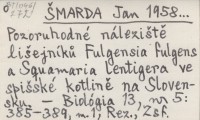 ŠMARDA Jan 1958...
Pozoruhodné náleziště
lišejníků Fulgensia fulgens
a Squamaria lentigera ve
spišské kotlině na Sloven-
sku. — Biológia 13, nº 5:
385-389, m.1, Rez., Zsf.